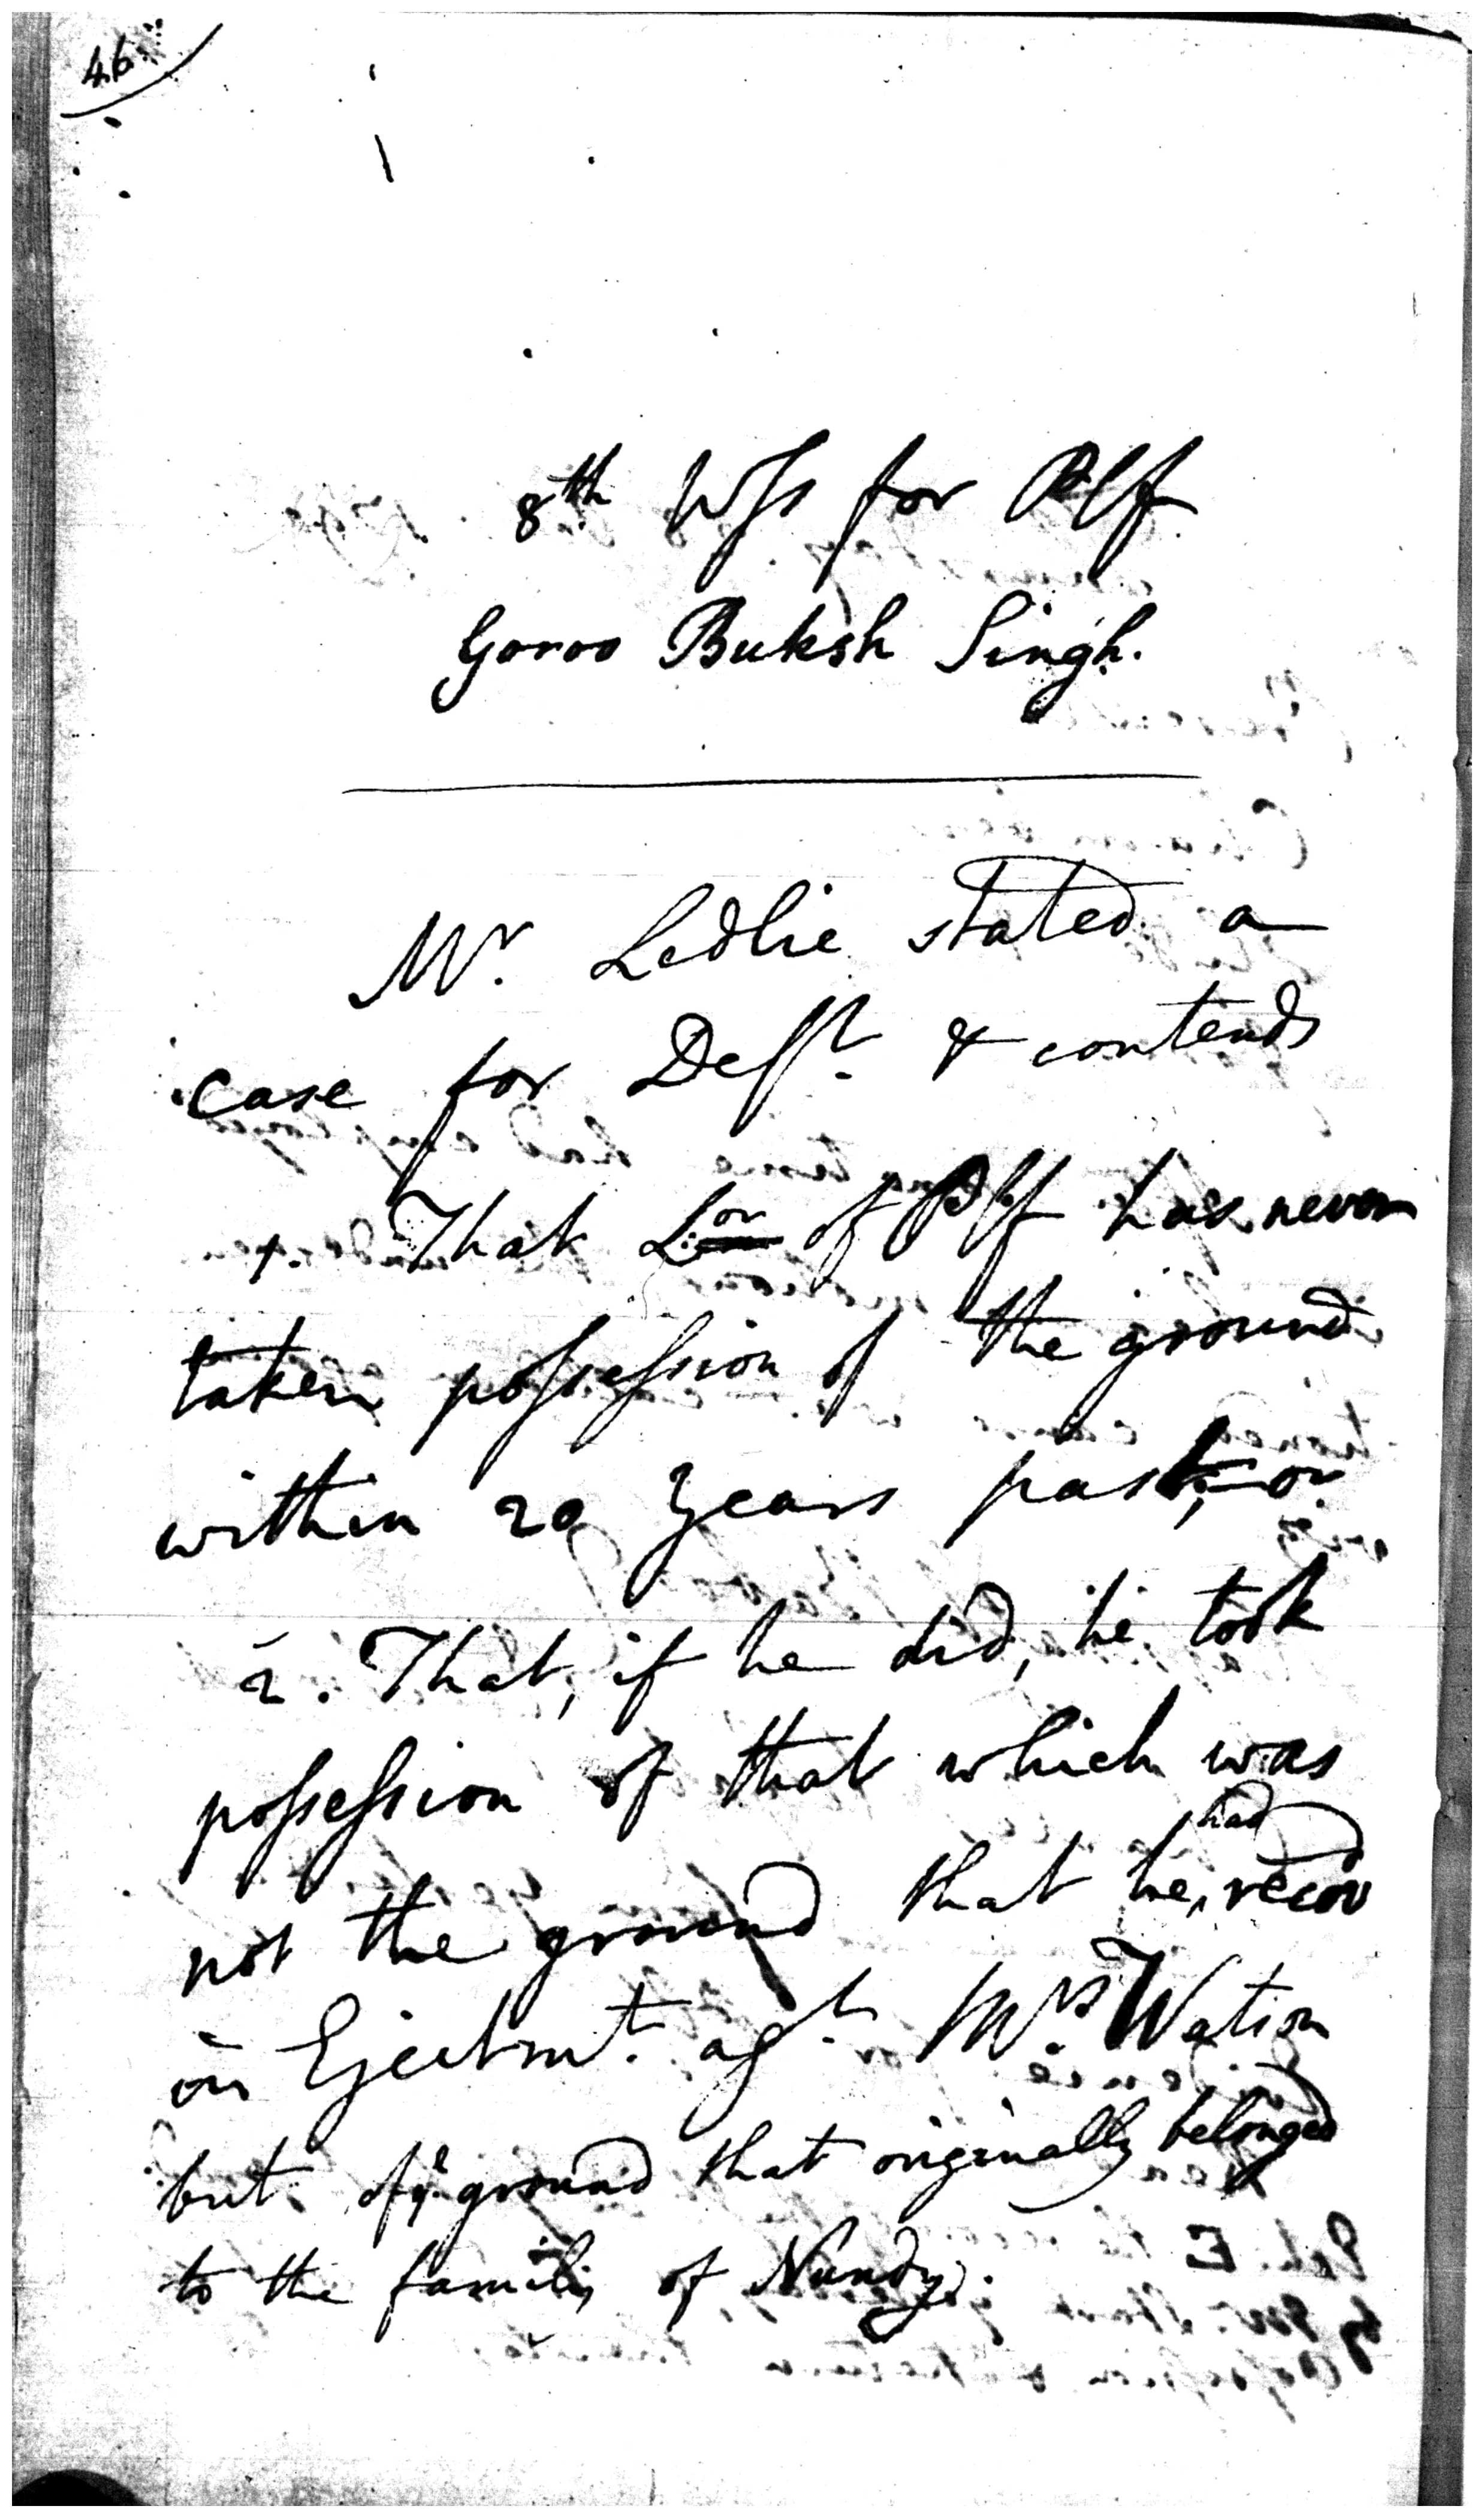 46
8th Wss for Plf
Goroo Buksh Singh.
Mr. Ledlie stated a
case for Deft. & contends
1. That Lor of Plf has never
taken possession of the ground
within 20 Years past, or
2. That, if he did, he took
possession of that which was
not the ground that he had recov
in Ejectmt. agt. Mrs. Watson
but of ye ground that originally belonged
to the family of Nundy.